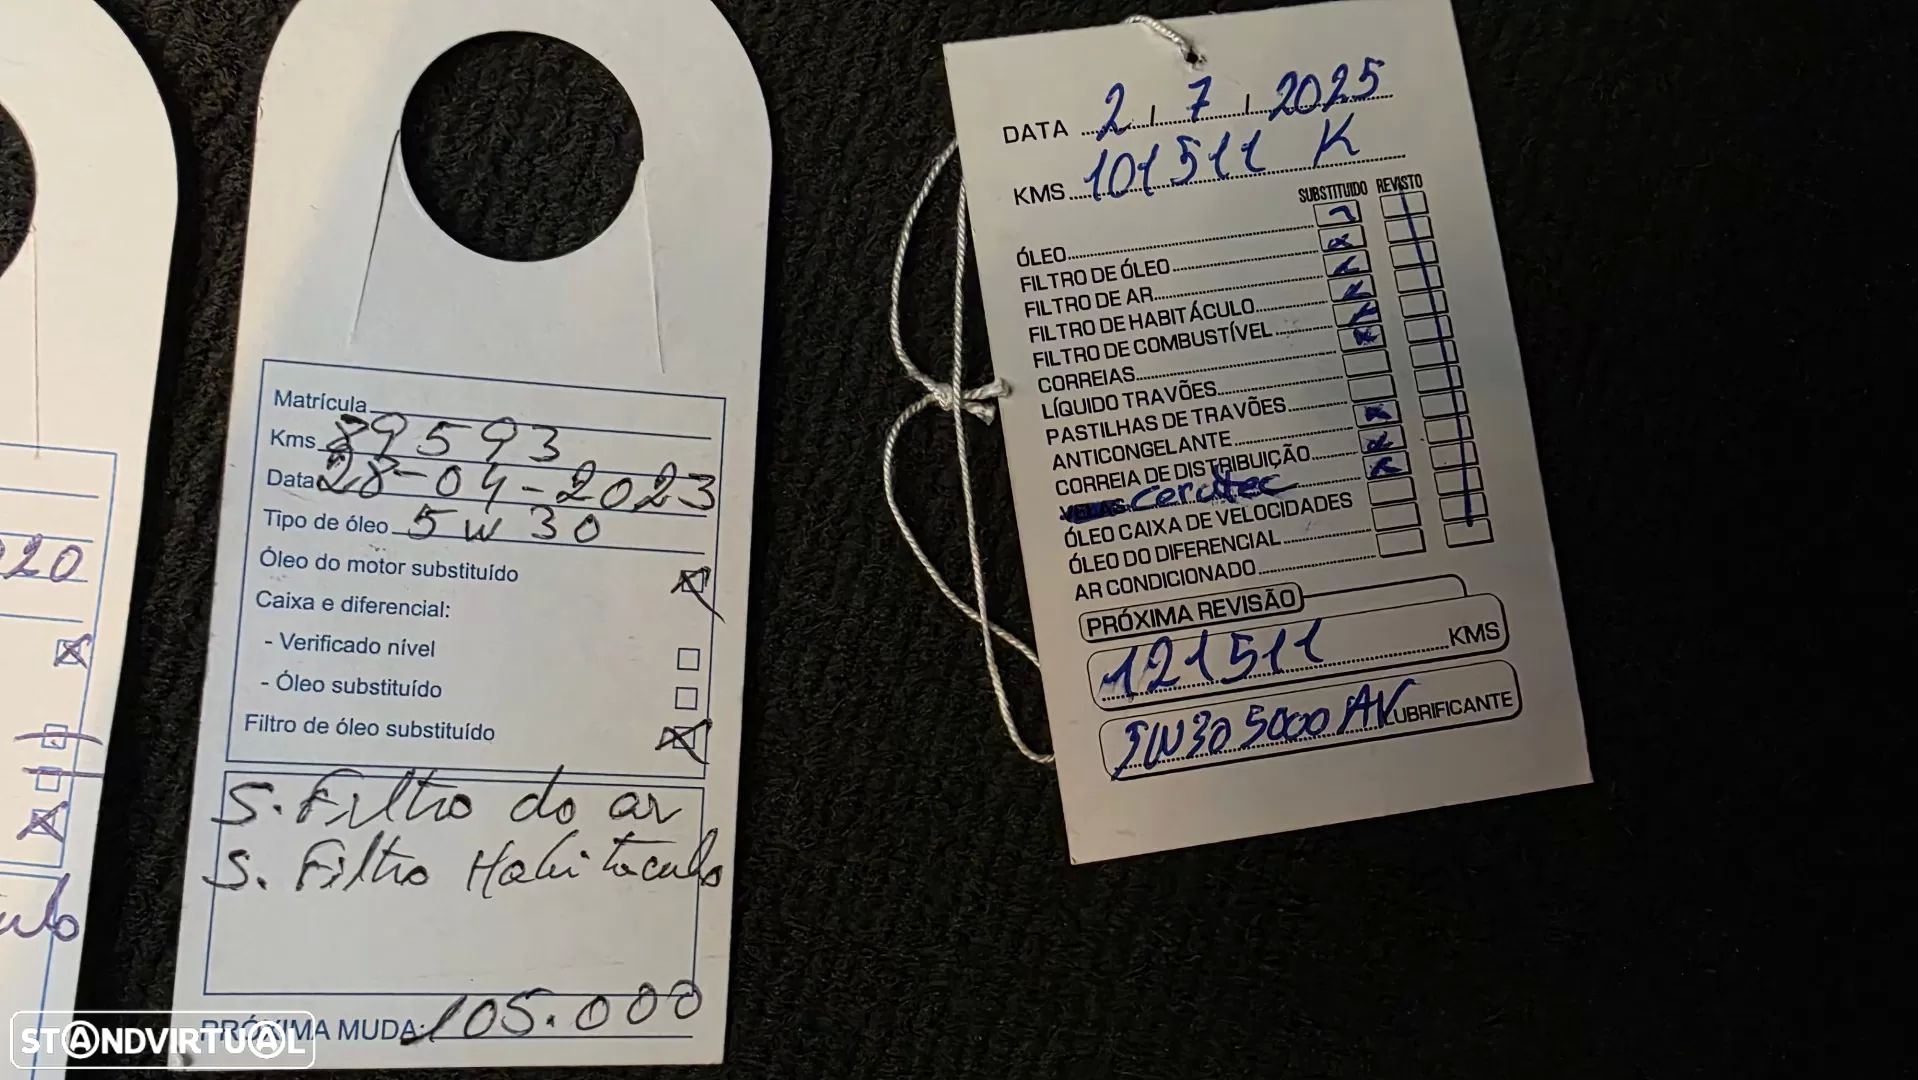 20
ulo
Matrícula
Kms 89593
Data 28-04-2023
Tipo de óleo 5W30
Óleo do motor substituído
Caixa e diferencial:
- Verificado nível
- Óleo substituído
Filtro de óleo substituído
S. Filtro do ar
S. Filtro Habitaculo
PRÓXIMA MUDA: 105.000
DATA 2 / 7 / 2025
KMS 101511 K
SUBSTITUIDO REVISTO
ÓLEO
FILTRO DE ÓLEO
FILTRO DE AR
FILTRO DE HABITÁCULO
FILTRO DE COMBUSTÍVEL
CORREIAS
LÍQUIDO TRAVÕES
PASTILHAS DE TRAVÕES
ANTICONGELANTE
CORREIA DE DISTRIBUIÇÃO
VELAS Ceratec
ÓLEO CAIXA DE VELOCIDADES
ÓLEO DO DIFERENCIAL
AR CONDICIONADO
PRÓXIMA REVISÃO
121511 KMS
5W30 5000 AV LUBRIFICANTE
STANDVIRTUAL